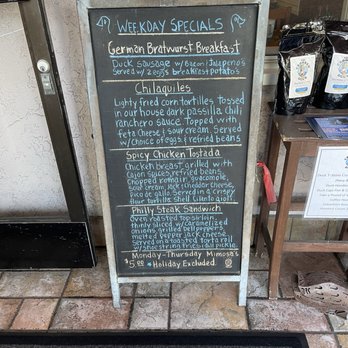 Weekday Specials
German Bratwurst Breakfast
Duck sausage w/ bacon & Jalapeno's
Served w/ 2 eggs & breakfast potato's
Chilaquiles
Lightly fried corn tortilles tossed
in our house dark passilla chili
ranchero sauce. Topped with
feta cheese & sour cream. Served
w/ choice of eggs & refried beans
Spicy Chicken Tostada
Chicken breast grilled with
Cajun spices, refried beans,
Chopped romain, guacamole,
sour cream, jack & cheddar cheese,
pico de gallo. Served in a crispy
flour tortilla shell
Philly Steak Sandwich
Oven roasted top sirloin,
thinly sliced w/ caramelized
onions, grilled bell peppers,
melted pepper jack cheese
Served on a toasted torta roll
w/ shoe string fries & dill pickle
Monday-Thursday Mimosa's
$5.00 *Holiday Excluded